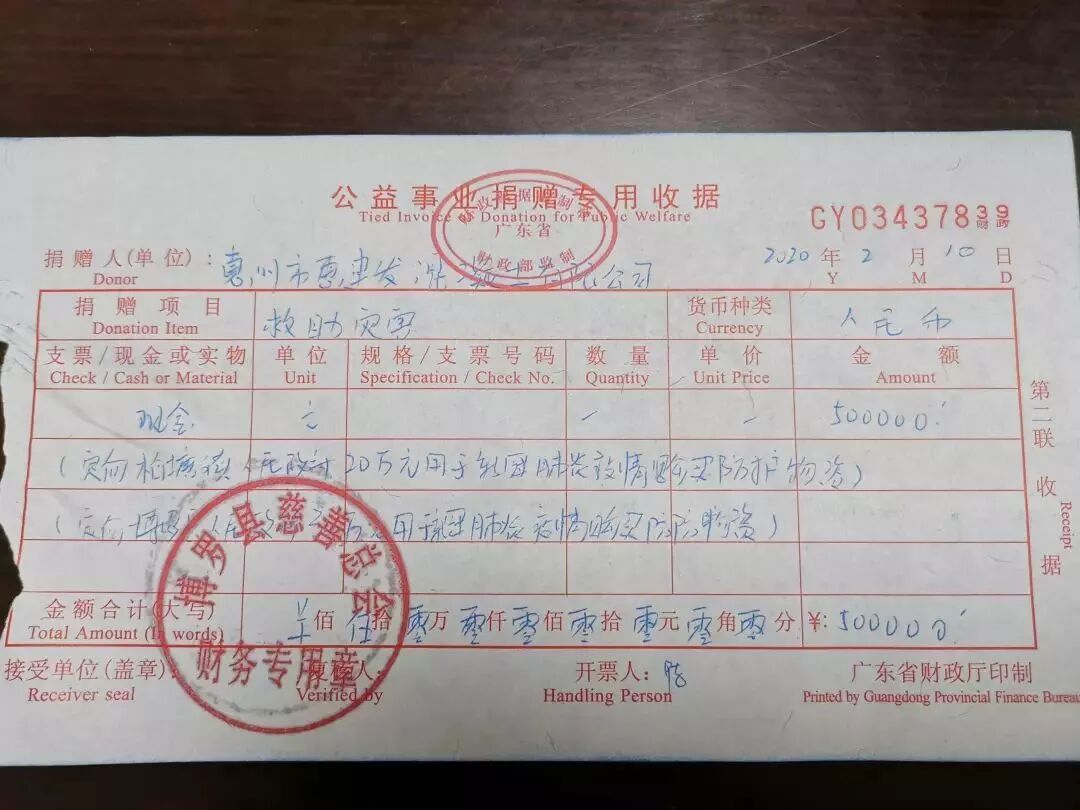 公益事业捐赠专用收据
Tied Invoice of Donation for Public Welfare
财政 据 制章
广东省
财政部监制
GY03437839
财政
捐赠人(单位): 惠州市惠建发混凝土有限公司 2020 年 2 月 10 日
Donor Y M D
捐赠项目 救助灾害 货币种类 人民币
Donation Item Currency
支票/现金或实物 单位 规格/支票号码 数量 单价 金额
Check / Cash or Material Unit Specification / Check No. Quantity Unit Price Amount
现金 元 一 一 500000
(定向柏塘镇人民政府20万元用于新冠肺炎疫情购买防护物资)
(定向博 用于新冠肺炎疫情购买防 物资)
金额合计(大写) 佰 伍拾零万零仟零佰 拾零元零角零分 ¥: 500000
Total Amount (In words)
接受单位(盖章): 复核人: 开票人: 广东省财政厅印制
Receiver seal Verified by Handling Person Printed by Guangdong Provincial Finance Bureau
博罗县慈善总会
财务专用章
第二联 收据
Receipt